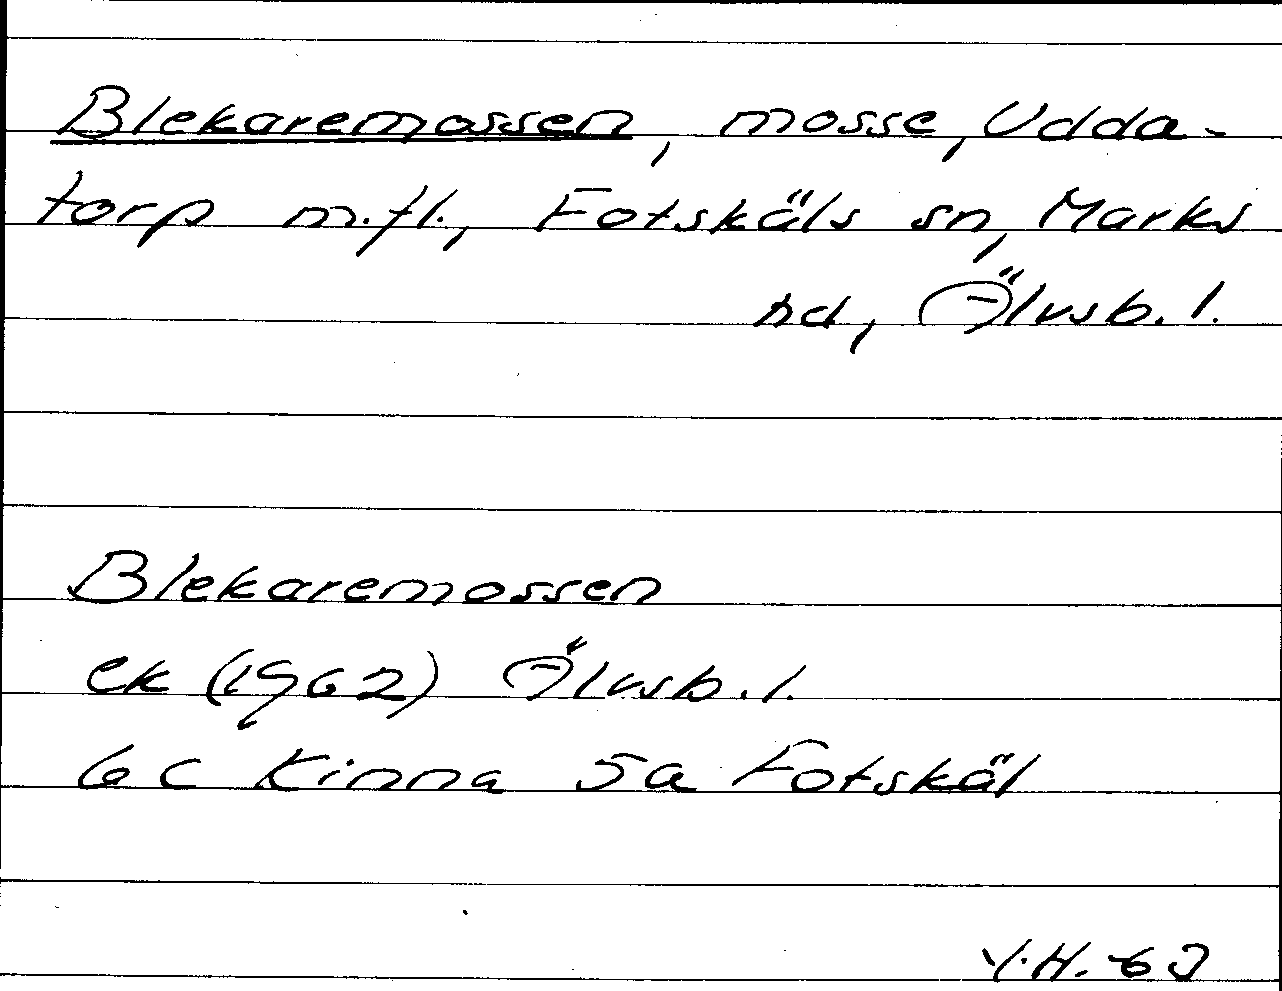 Blekaremossen, mosse, Udda-
torp m.fl., Fotskäls sn, Marks
hd, Älvsb. l.
Blekaremossen
ek (1962) Älvsb. l.
6 C Kinna 5a Fotskäl
Y.H. 63